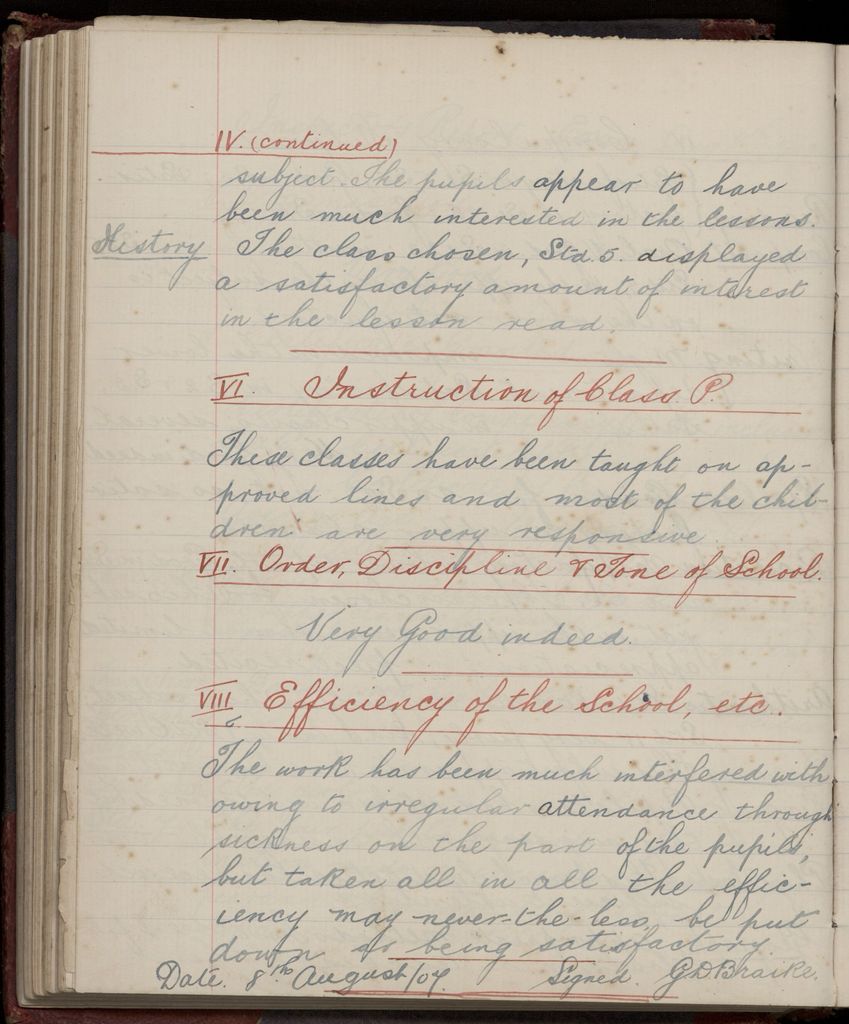 IV. (continued)
subject. The pupils appear to have
been much interested in the lessons.
History The class chosen, Std. 5. displayed
a satisfactory amount of interest
in the lesson read.
VI. Instruction of Class. P.
These classes have been taught on ap-
proved lines and most of the chil-
dren are very responsive.
VII. Order, Discipline & Tone of School.
Very Good indeed.
VIII Efficiency of the School, etc.
The work has been much interfered with
owing to irregular attendance through
sickness on the part of the pupils,
but taken all in all the effic-
iency may never-the-less, be put
down as being satisfactory.
Date. 8th August/07 Signed. G D Braike.